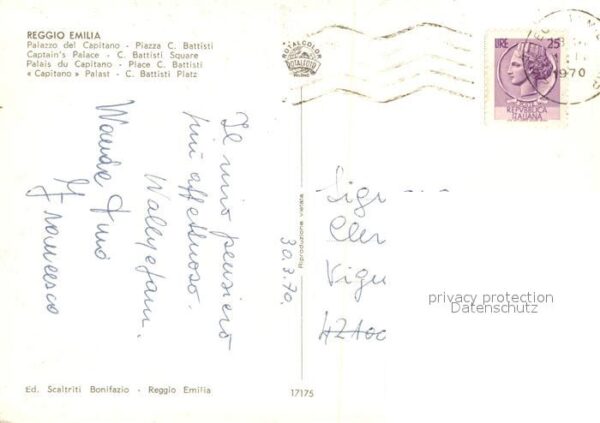 REGGIO EMILIA
Palazzo del Capitano - Piazza C. Battisti
Captain's Palace - C. Battisti Square
Palais du Capitano - Place C. Battisti
« Capitano » Palast - C. Battisti Platz
ROTALCOLOR
ROTALFOTO
MILANO
LIRE 25
REPVBBLICA
ITALIANA
1970
Il mio pensiero
più affettuoso.
Wally
Wanda
Francesco
30.7.70.
Riproduzione vietata
Sigr
Cler
Vign
42100
privacy protection
Datenschutz
Ed. Scaltriti Bonifazio - Reggio Emilia
17175